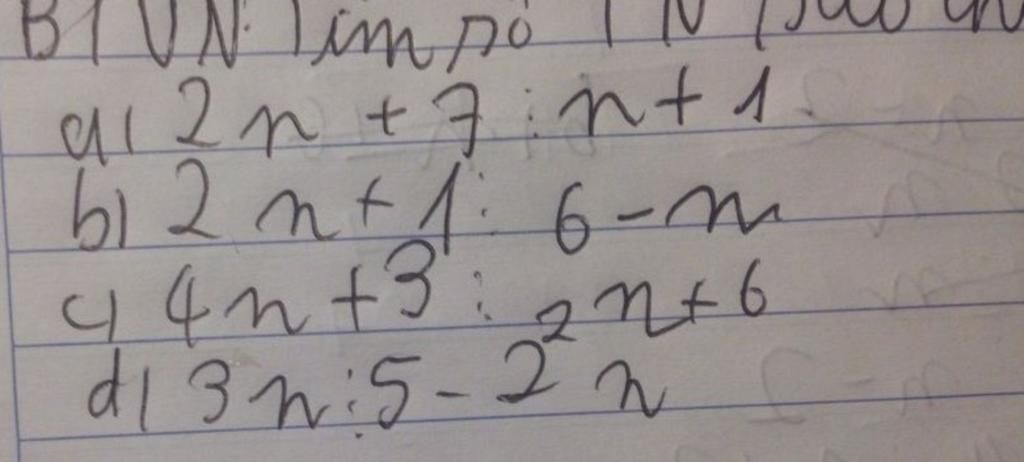 BTVN: Tìm số TN
a) 2n + 7 ⋮ n + 1
b) 2n + 1 ⋮ 6 - n
c) 4n + 3 ⋮ 2n + 6
d) 3n ⋮ 5 - 2n